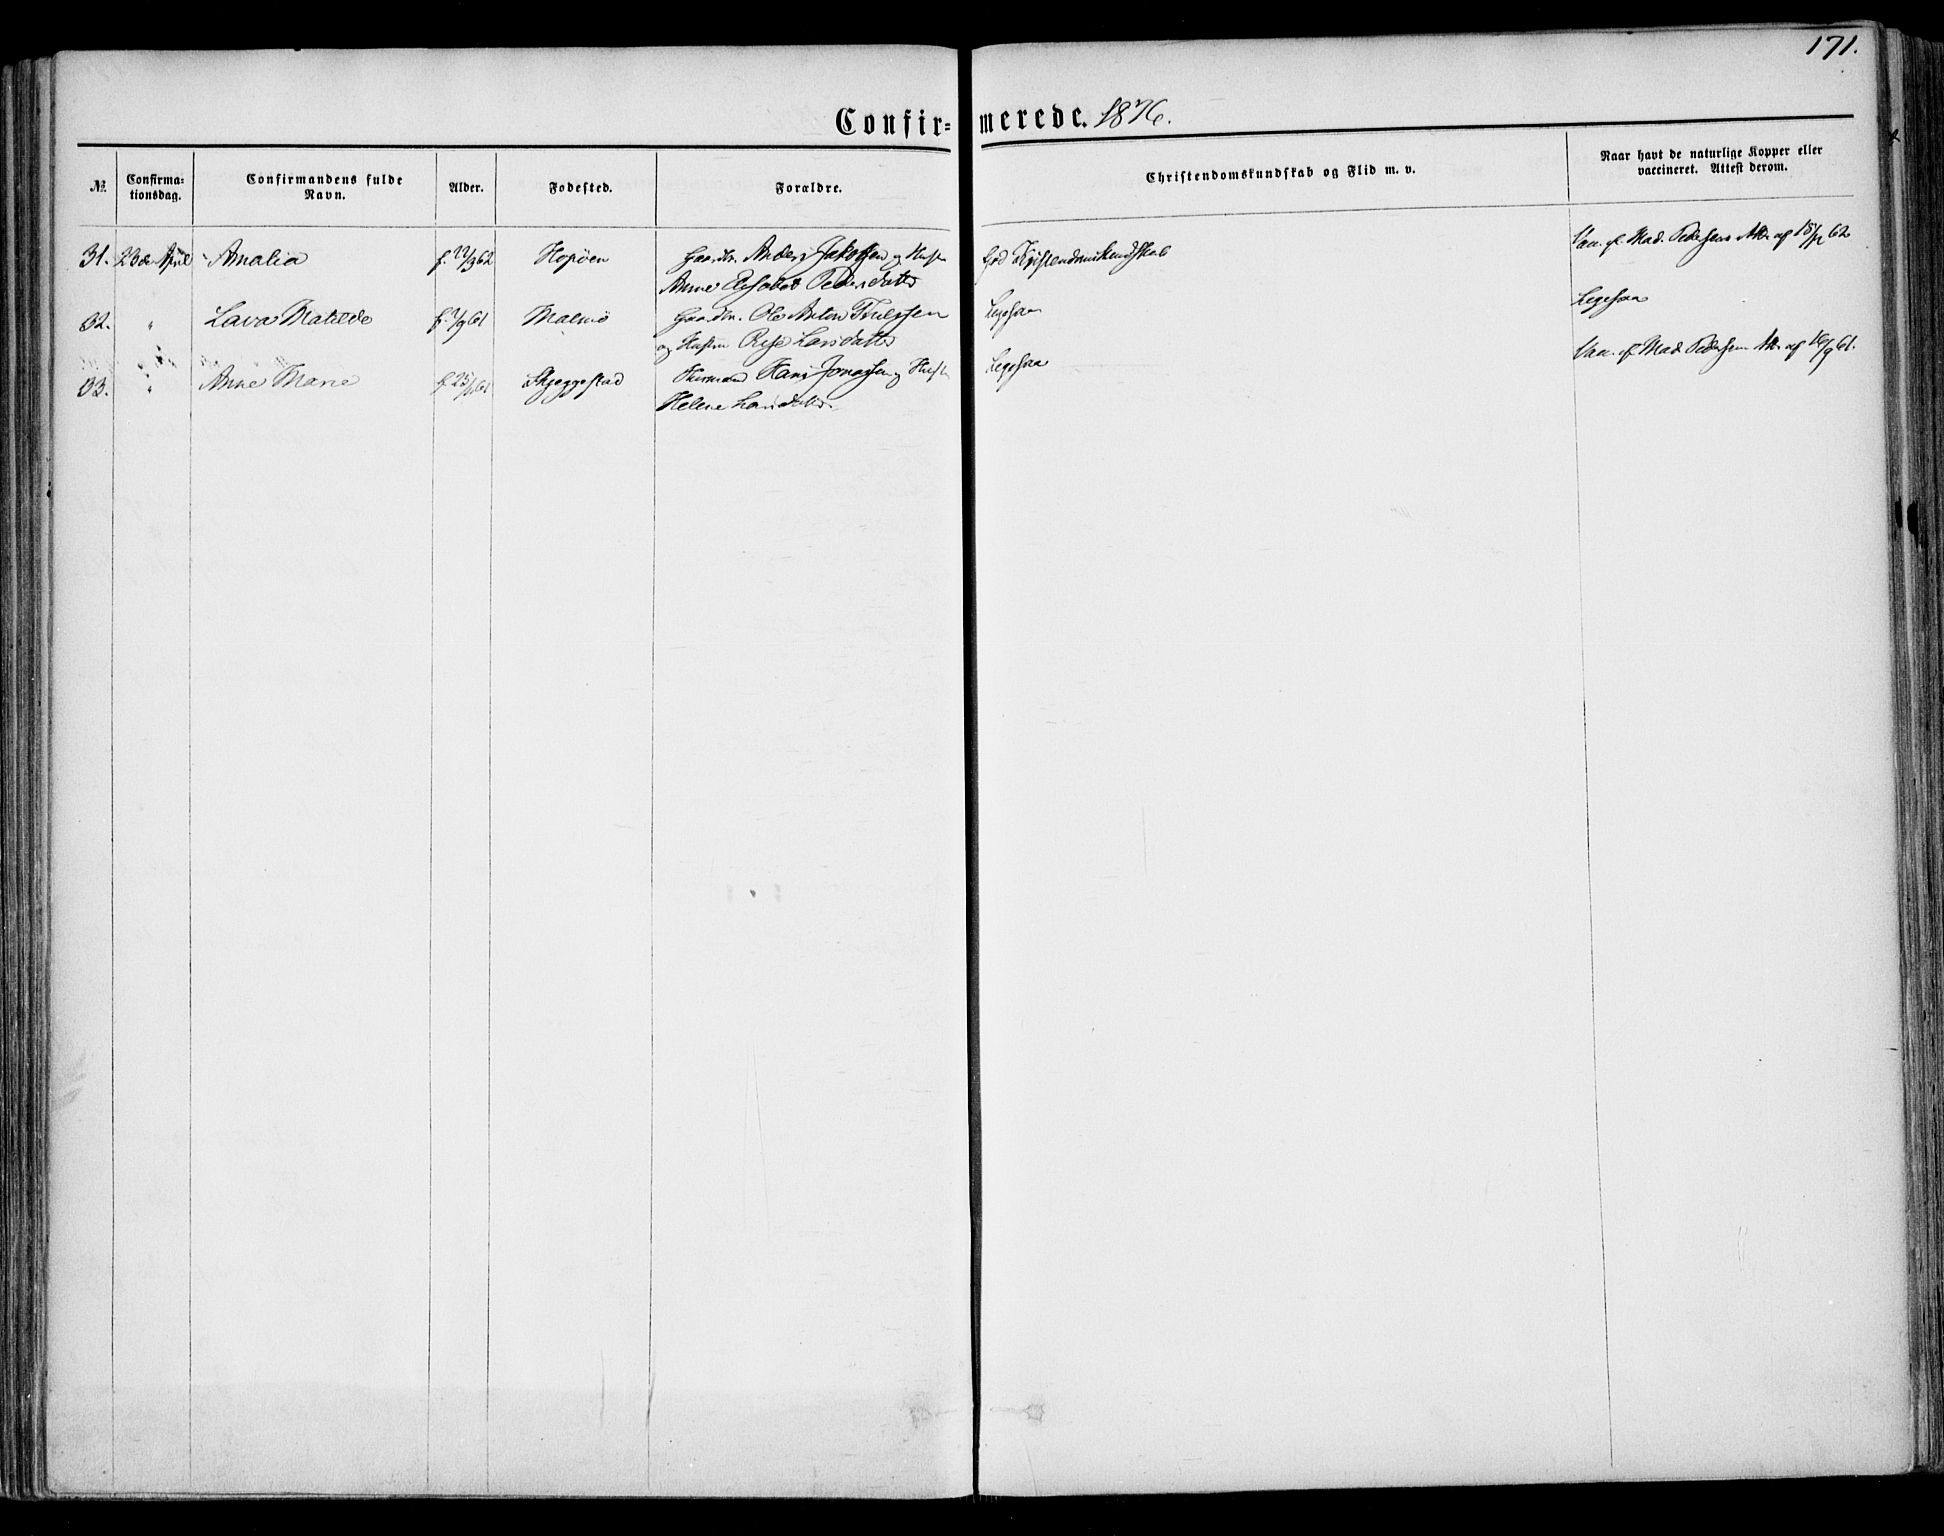 171.
Confir= merede. 1876.
№
Confirma=
tionsdag.
Confirmandens fulde
Navn.
Alder.
Fødested.
Forældre.
Christendomskundskab og Flid m. v.
Naar havt de naturlige Kopper eller
vaccineret. Attest derom.
31. 23de April Amalia f. 62 Hopøen Gaardbr. Anders Jakobsen og Hustr
Anne Elisabet Pedersdatter
God Kristendomskundskab
Vac. af Mad. Pedersens Att. af 62
32. " Lava Matilde f. /9 61 Malmø Gaardbr. Ole Anton
og Hustru Larsdatter
Ligesaa
Ligesaa
33. " Anne Marie f. 25/ 61 Skjeggestad Huusmand Hans Jonassen og Hustr
Helene Larsdatter.
Ligesaa
Vac. af Mad. Pedersen Att. af 16/9 61.